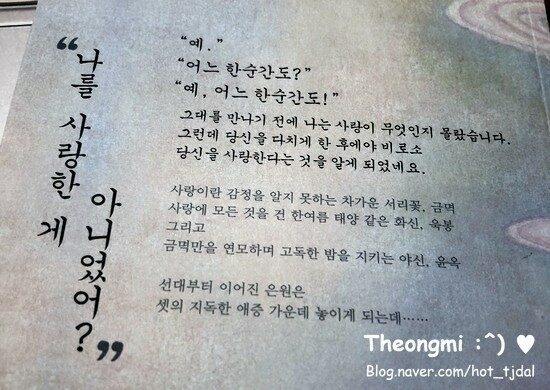 “나를 사랑한 게
아니었어?”
“예.”
“어느 한순간도?”
“예, 어느 한순간도!”
그대를 만나기 전에 나는 사랑이 무엇인지 몰랐습니다.
그런데 당신을 다치게 한 후에야 비로소
당신을 사랑한다는 것을 알게 되었네요.
사랑이란 감정을 알지 못하는 차가운 서리꽃, 금멱
사랑에 모든 것을 건 한여름 태양 같은 화신, 욱봉
그리고
금멱만을 연모하며 고독한 밤을 지키는 야신, 윤옥
선대부터 이어진 은원은
셋의 지독한 애증 가운데 놓이게 되는데……
Theongmi :^) ♥
Blog.naver.com/hot_tjdal